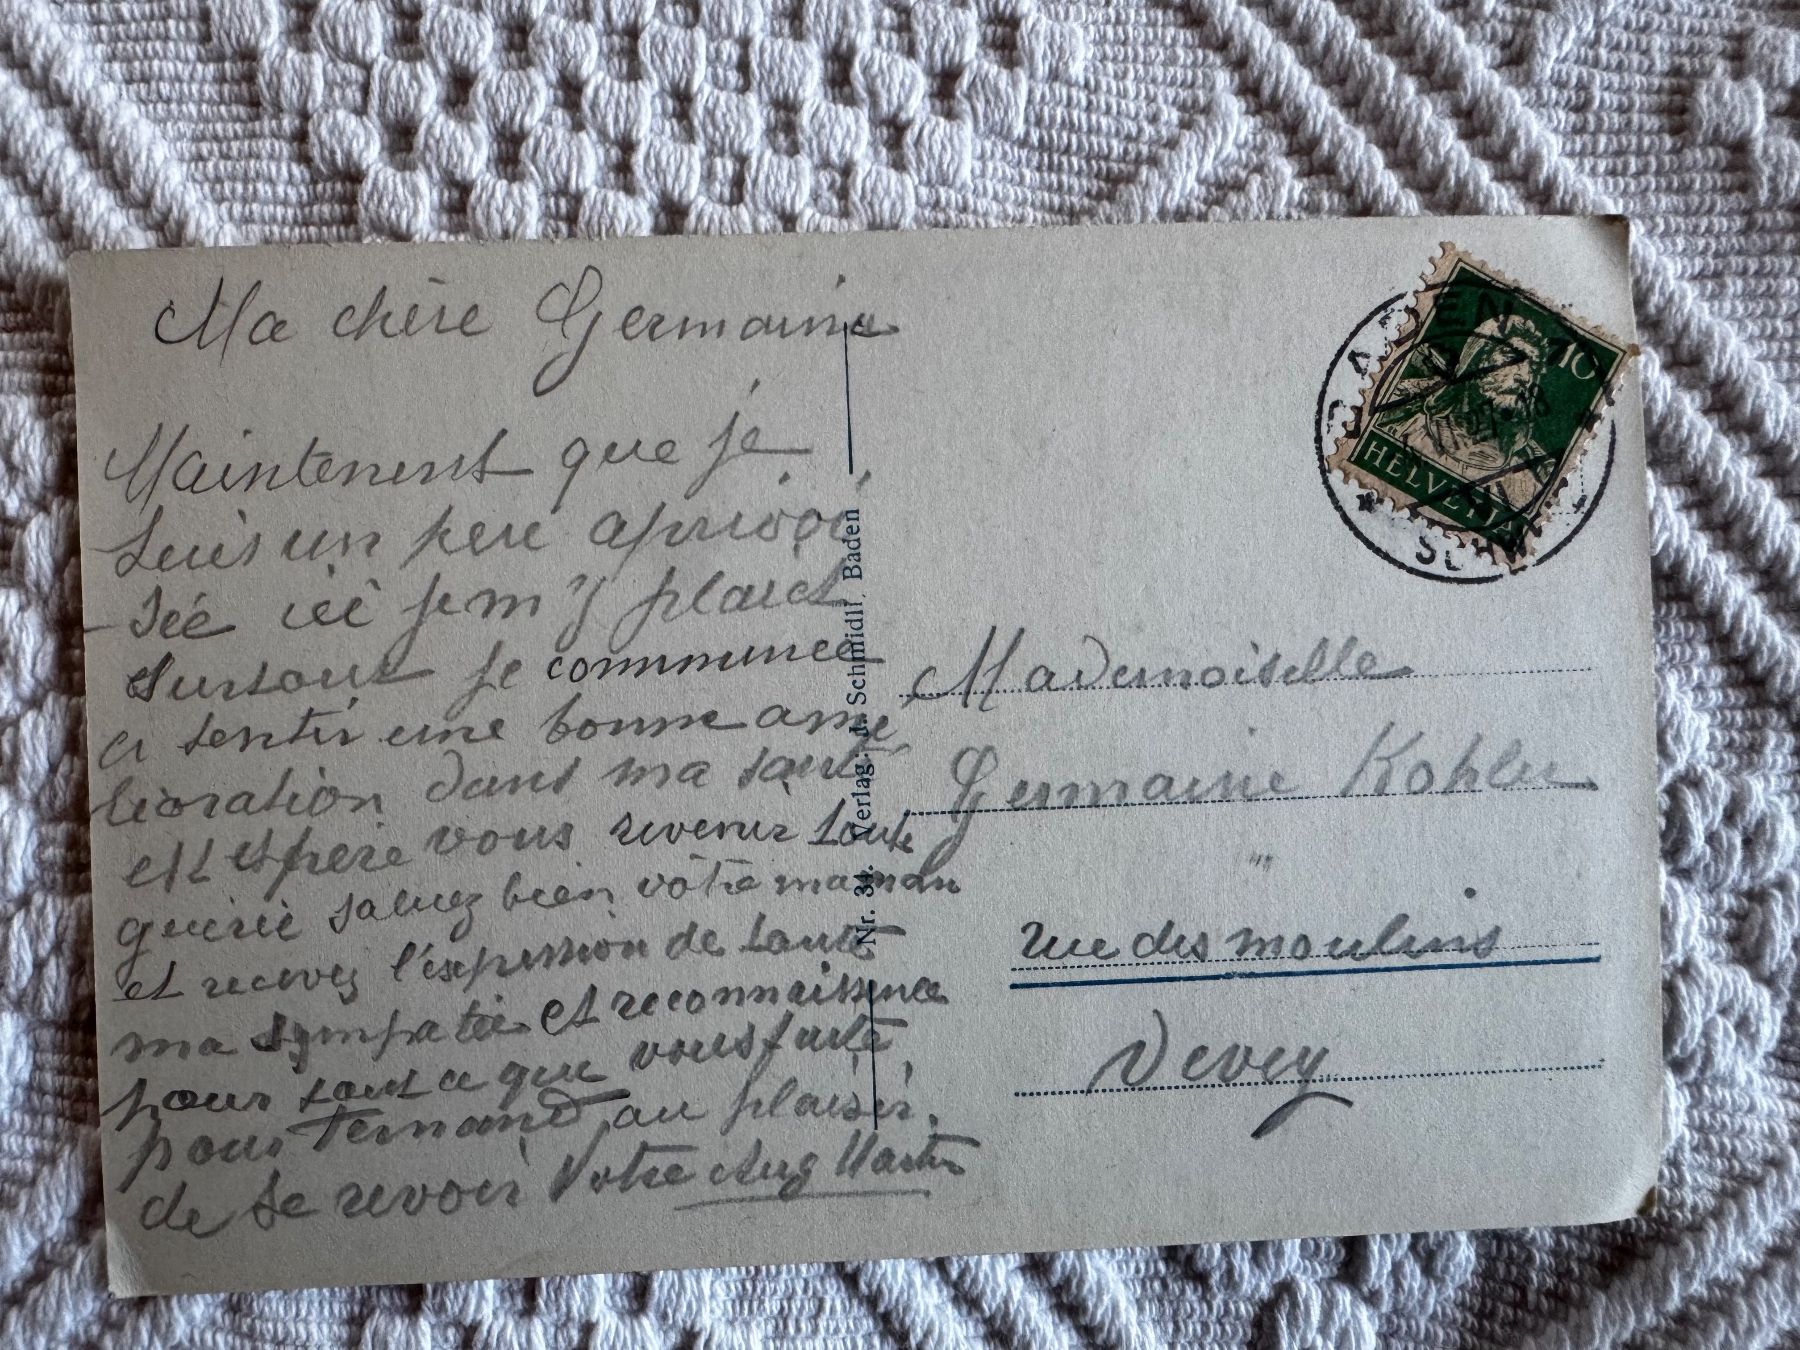 Ma chère Germaine
Maintenent que je
suis un pere aprivoi
-sée ici je m'y plaict
surtout je commence
a sentir une bonne amé
lioration dans ma santé
ett espere vous revenir toute
guerie saluez bien vôtre maman
et recevez l'éxpression de toute
ma sympatie et reconnaissence
pour tout ce que vous faite
pour Fernand au plaisir
de se revoir Votre Aug Martin
Nr. 34. Verlag: J. Schmidli, Baden
BADEN
10
27-18
HELVETIA
Mademoiselle
Germaine Kohler
"
rue des moulins
Vevey